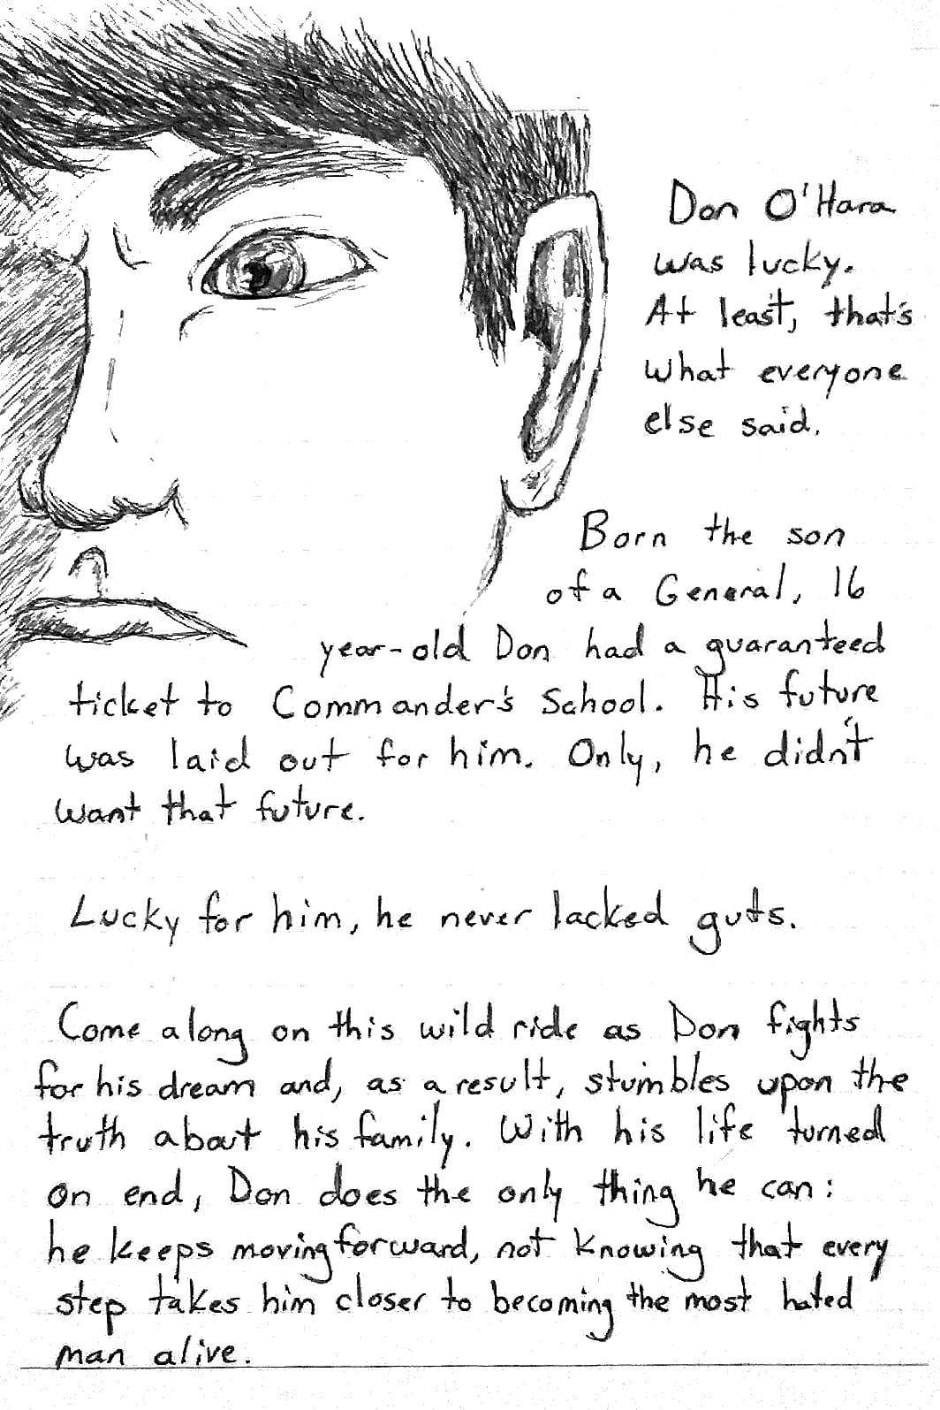 Don O'Hara
was lucky.
At least, that's
what everyone
else said.
Born the son
of a General, 16
year-old Don had a guaranteed
ticket to Commander's School. His future
was laid out for him. Only, he didn't
want that future.
Lucky for him, he never lacked guts.
Come along on this wild ride as Don fights
for his dream and, as a result, stumbles upon the
truth about his family. With his life turned
on end, Don does the only thing he can:
he keeps moving forward, not knowing that every
step takes him closer to becoming the most hated
man alive.